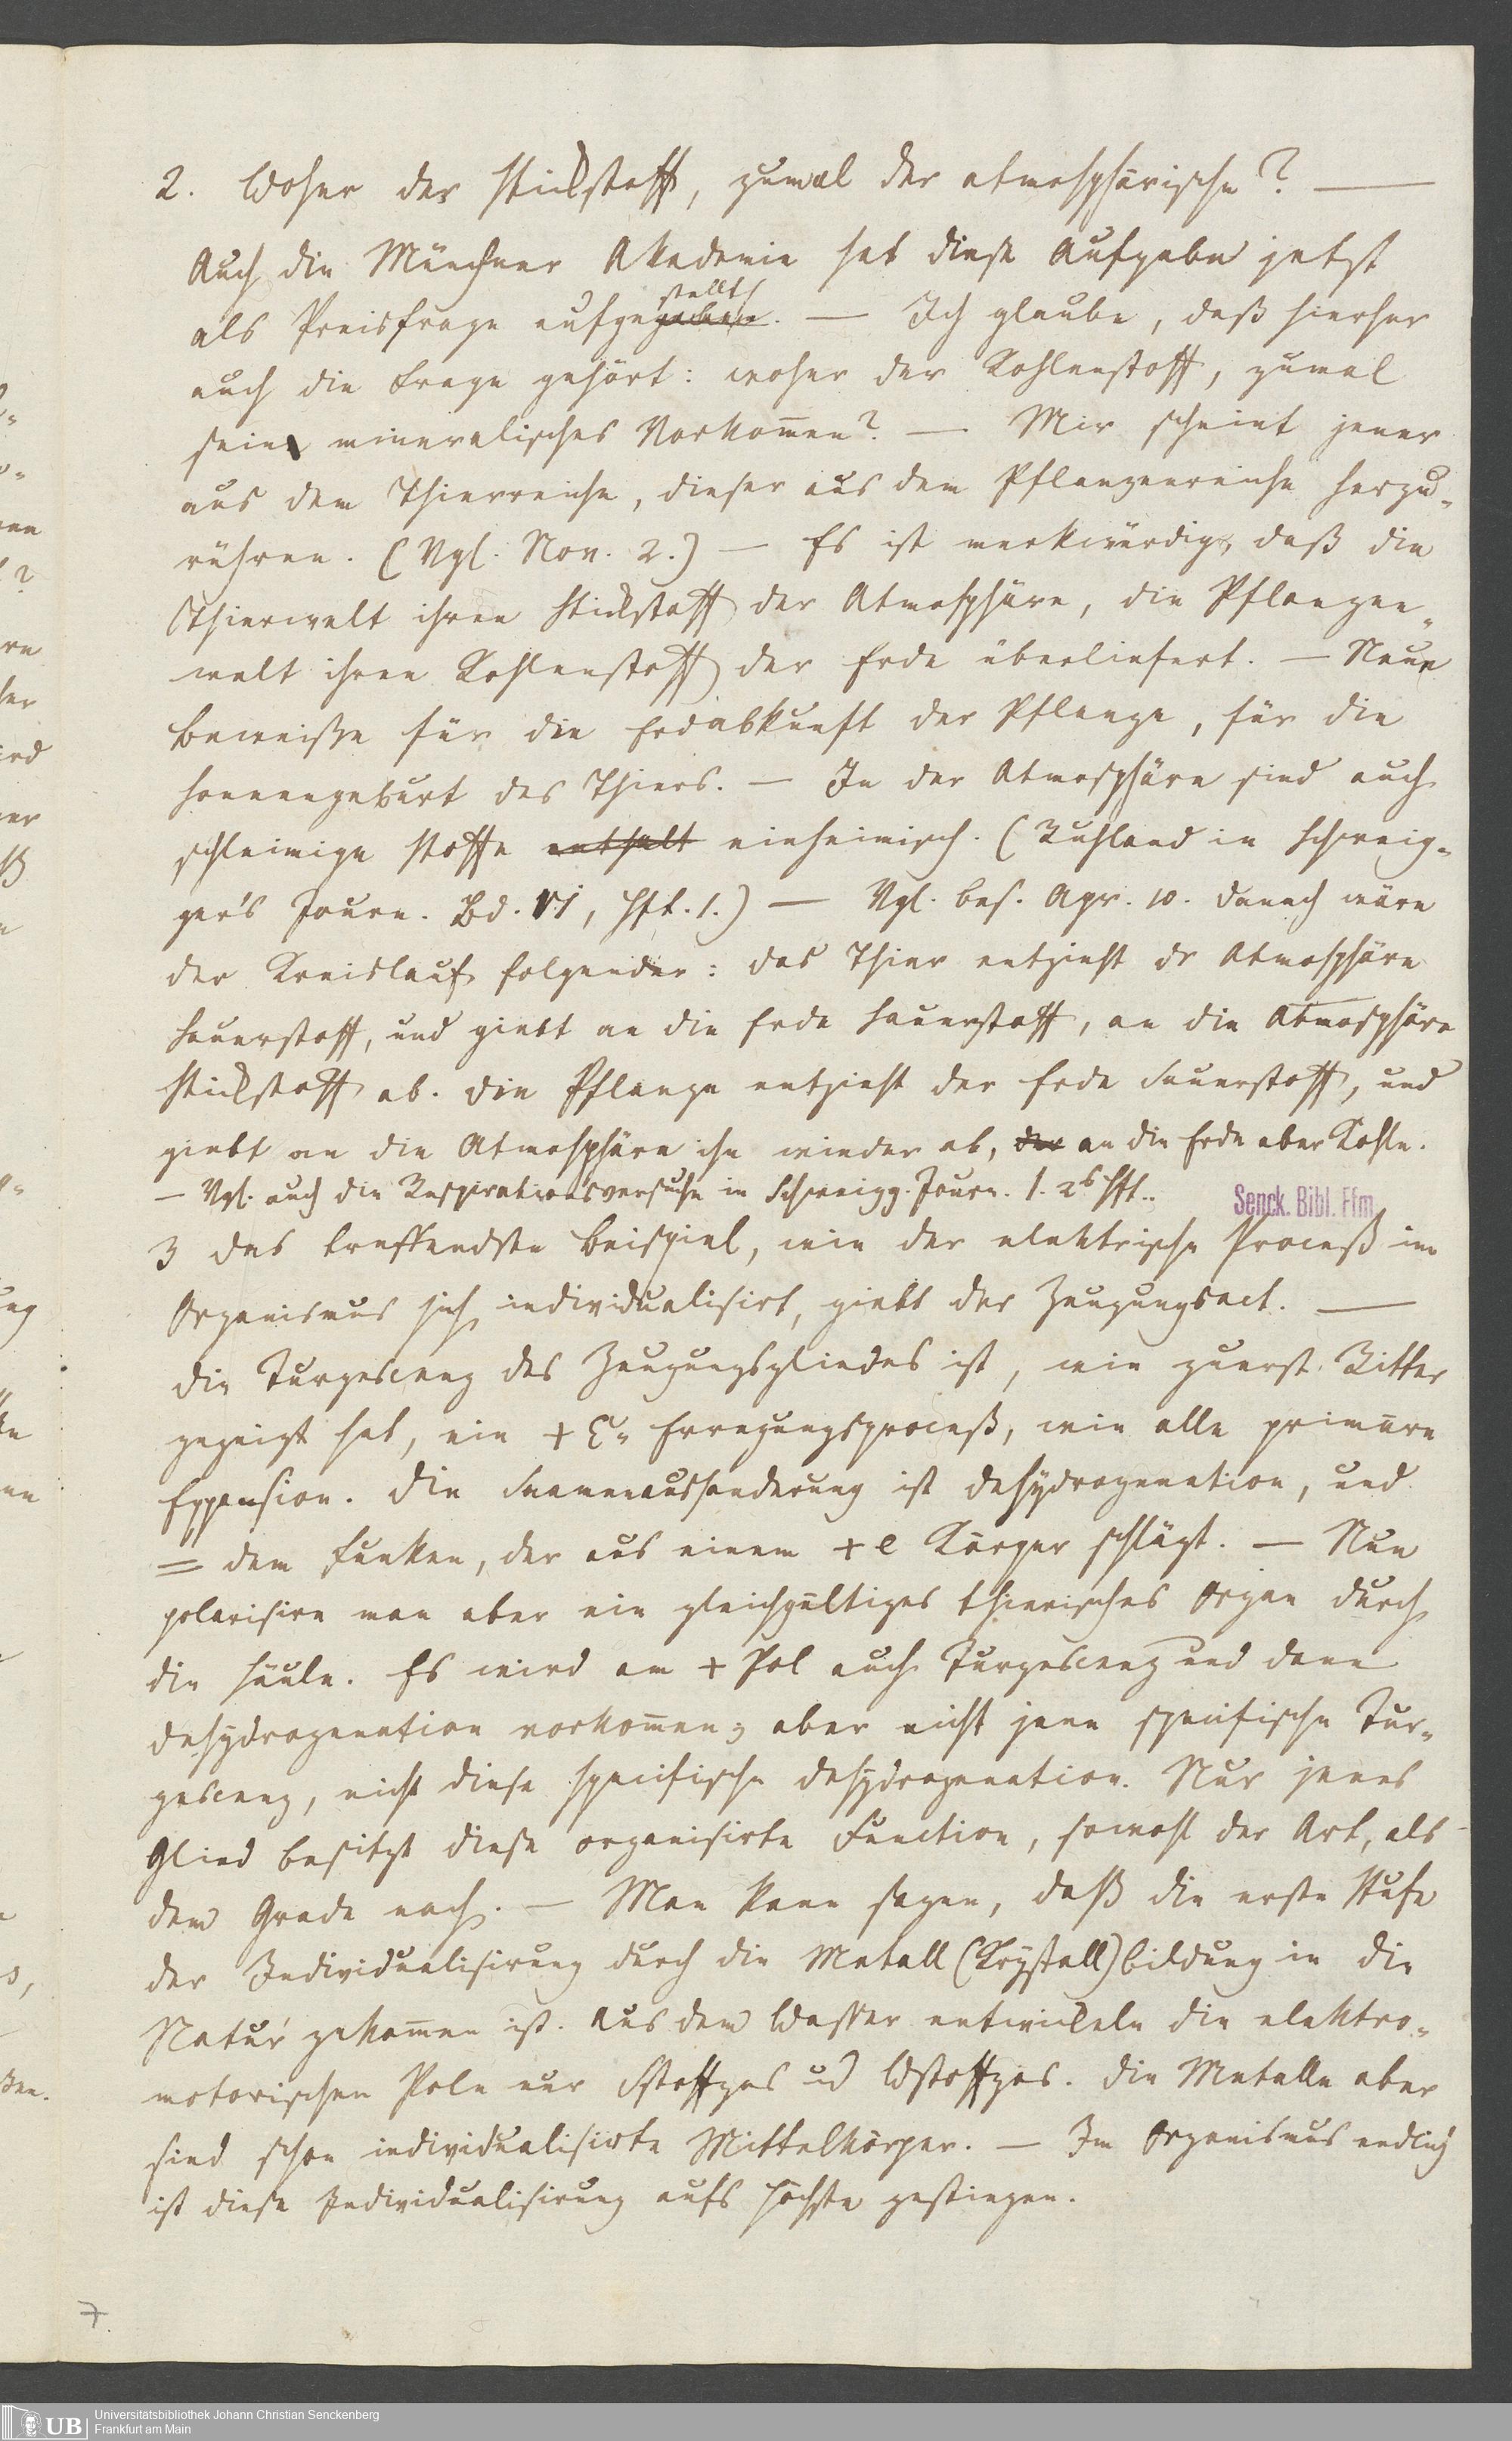 2. Woher der Stickstoff, zumal der atmosphärische? —
Auch die Münchner Akademie hat diese Aufgabe jetzt
als Preisfrage aufgestellt. — Ich glaube, daß hierher
auch die Frage gehört: woher der Kohlenstoff, zumal
sein mineralisches Vorkom̄en? — Mir scheint jener
aus dem Thierreiche, dieser aus dem Pflanzenreiche herzu-
rühren. (Vgl. Nov. 2.) — Es ist merkwürdig, daß die
Thierwelt ihren Stickstoff der Atmosphäre, die Pflanzen-
welt ihren Kohlenstoff der Erde überliefert. — Neue
Beweiße für die Erdabkunft der Pflanze, für die
Sonnengeburt des Thiers. — In der Atmosphäre sind auch
schleimige Stoffe enthalt einheimisch. (Ruhland in Schweig-
ger's Journ. Bd. VI, Hft. 1.) — Vgl. bes. Apr. 10. Danach wäre
der Kreislauf folgender: das Thier entzieht dr Atmosphäre
Sauerstoff, und giebt an die Erde Sauerstoff, an die Atmosphäre
Stickstoff ab. Die Pflanze entzieht der Erde Sauerstoff, und
giebt an die Atmosphäre ihn wieder ab, der an die Erde aber Kohle.
— Vgl. auch die Respirationsversuche in Schweigg. Journ. 1. 2s Hft..
Senck. Bibl. Ffm
3 Das treffendste Beispiel, wie der elektrische Proceß im
Organismus sich individualisirt, giebt der Zeugungsact. —
Die Turgescenz des Zeugungsgliedes ist, wie zuerst Ritter
gezeigt hat, ein + E- Erregungsproceß, wie alle primäre
Expansion. Die Saamenaussonderung ist Dehydrogenation, und
= dem Funken, der aus einem + e Körper schlägt. — Nun
polarisire man aber ein gleichgültiges thierisches Organ durch
die Säule. Es wird am + Pol auch Turgescenz und dann
Dehydrogenation vorkom̄en; aber nicht jene specifische Tur-
gescenz, nicht diese specifische Dehydrogenation. Nur jenes
Glied besitzt diese organisirte Function, sowohl der Art, als
dem Grade nach. — Man kann sagen, daß die erste Stufe
der Individualisirung durch die Metall (Krystall) bildung in die
Natur gekom̄en ist. Aus dem Wasser entwickeln die elektro-
motorischen Pole nur Sstoffgas ud Wstoffgas. Die Metalle aber
sind schon individualisirte Mittelkörper. — Im Organismus endlich
ist diese Individualisirung aufs höchste gestiegen.
7.
UB
Universitätsbibliothek Johann Christian Senckenberg
Frankfurt am Main